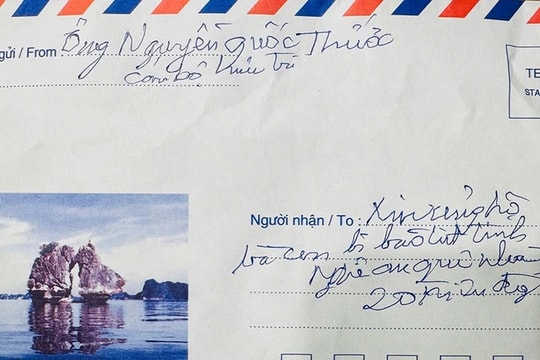 gửi / From : Ông Nguyễn Quốc Thước
cán bộ hưu trí
TE
STA
Người nhận / To : Xin ủng hộ
bà con bị bão lụt tỉnh
Nghệ an
20 triệu đồng